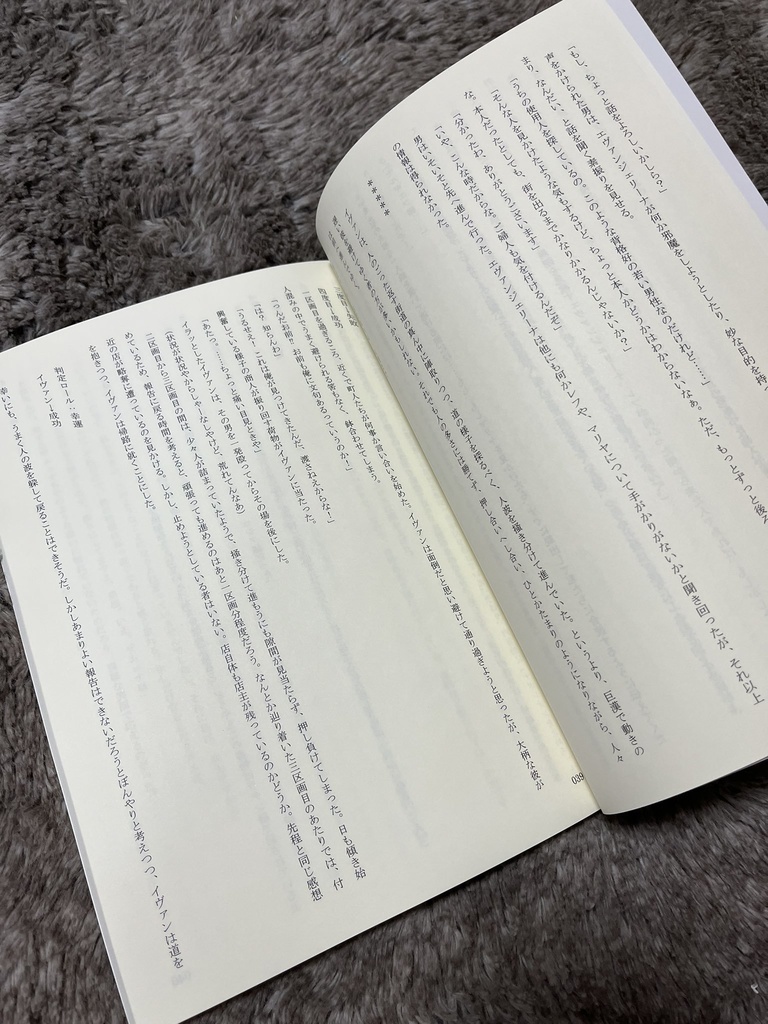 「もし、ちょっと話をよろしいかしら？」
声をかけられた男は、エヴァンジェリーナが何か邪魔をしようとしたり、妙な目的を持っ
まり、なんだい、と話を聞く素振りを見せる。
「うちの使用人を探しているの。このような背格好の若い男性なのだけれど……」
「そんな人を見かけたような気もするけど、ちょっと本人かどうかはわからないなぁ。ただ、もっとずっと後ろ
な。本人だったとしても、街を出るまでかなりかかるんじゃないか？」
「分かったわ、ありがとうございます」
「いや、こんな時だからな。ご婦人も気を付けるんだぞ」
男はいそいそと先へ進んで行った。エヴァンジェリーナは他にも何かレフや、マリヤについて手がかりがないかと聞き回ったが、それ以上
の情報は得られなかった。
＊＊＊＊＊
イヴァンは、人のごった返す街道の真ん中に陣取りつつ、道の様子を探るべく、人波を掻き分けて進んでいた。というより、巨漢で動きの
押し合いへし合い、ひとかたまりのようになりながら、人々
039
四度目→成功
一区画目を過ぎるころ、近くで町人たちが何事か言い合いを始めた。イヴァンは面倒だと思い避けて通り過ぎようと思ったが、大柄な彼が
人混みの中でうまく避けられる筈もなく、鉢合わせてしまう。
「っんだお前!! お前も俺に文句あるっていうのか！」
「は？ 知らんわ」
「うるせえ！ これは俺が見つけてきたんだ、渡さねえからな！」
興奮している様子の商人が振り回す荷物がイヴァンに当たった。
「あたっ……ちょっと痛い目見ときや」
イラッとしたイヴァンは、その男を一発殴ってからその場を後にした。
（状況が状況やからしゃーなしやけど、荒れてんなあ）
二区画目から三区画目の間は、少々人が詰まっていたようで、掻き分けて進もうにも隙間が見当たらず、押し負けてしまった。日も傾き始
めているため、報告に戻る時間を考えると、頑張っても進めるのはあと一区画分程度だろう。なんとか辿り着いた三区画目のあたりでは、付
近の店が略奪に遭っているのを見かける。しかし、止めようとしている者はいない。店自体も店主が残っているのかどうか。先程と同じ感想
を抱きつつ、イヴァンは帰路に就くことにした。
判定ロール：幸運
イヴァン→成功
幸いにも、うまく人の波を躱して戻ることはできそうだ。しかしあまりよい報告はできないだろうとぼんやりと考えつつ、イヴァンは道を